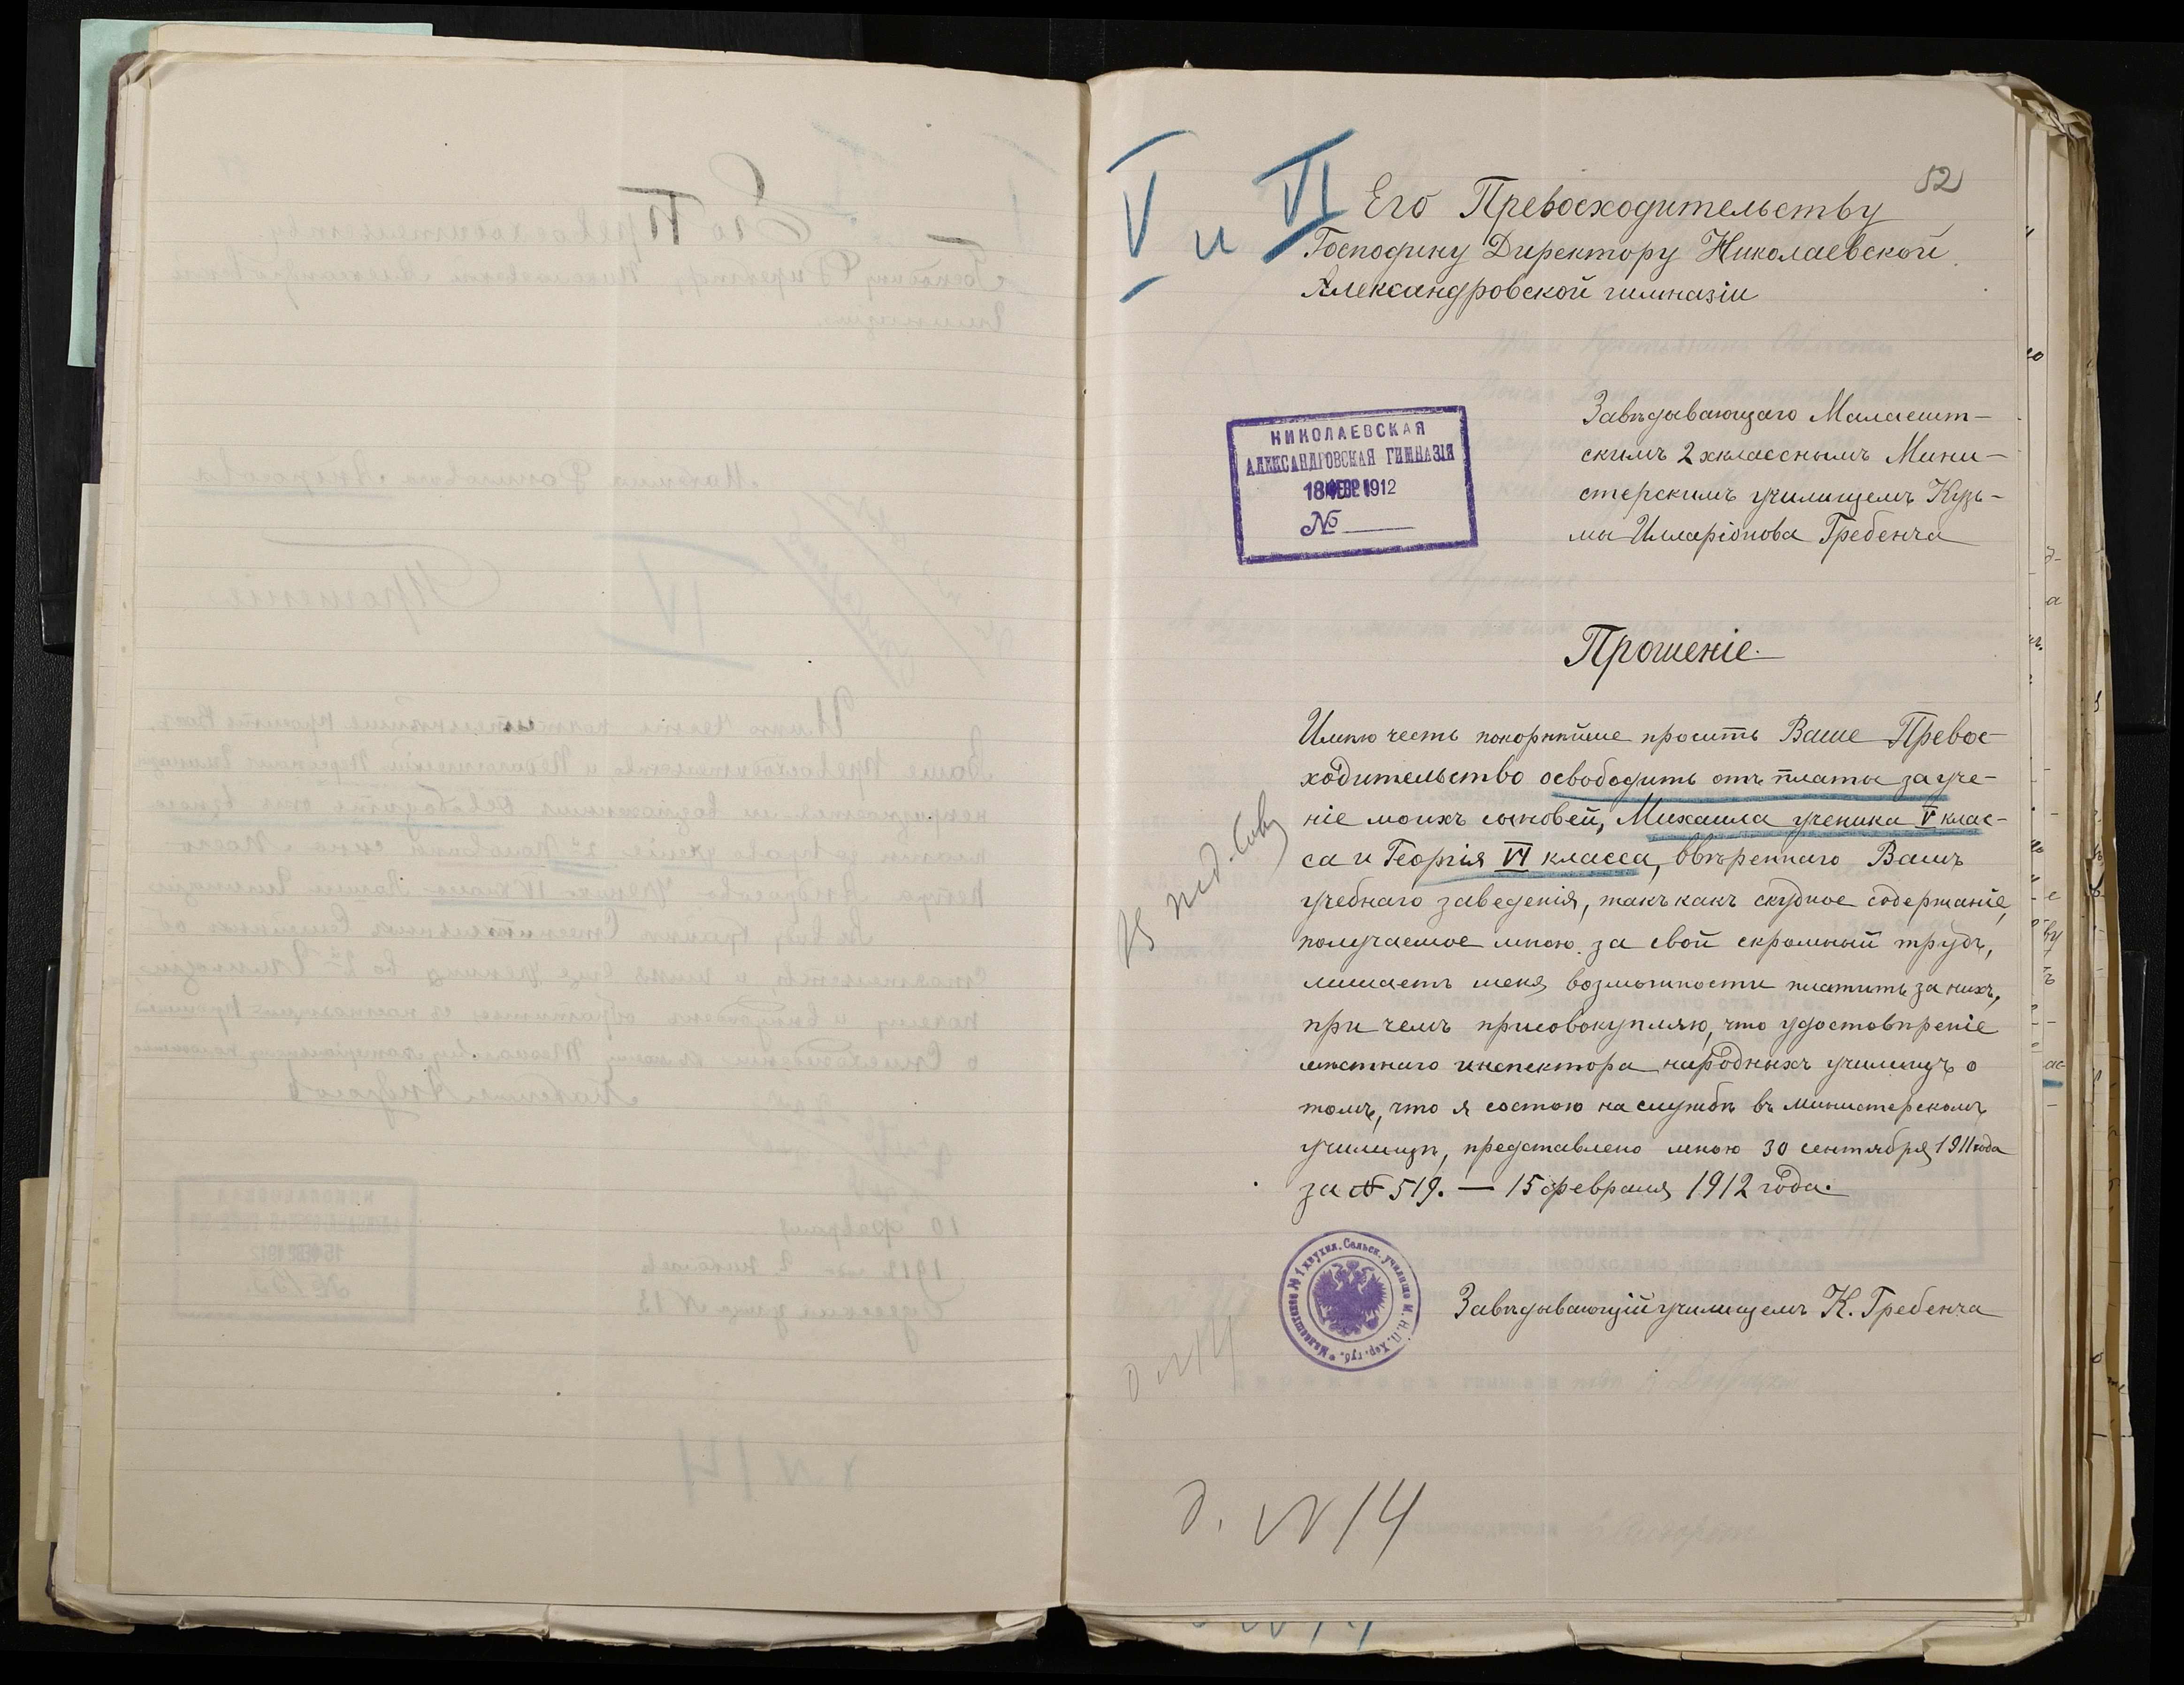 52
V и VI
Его Превосходительству
Господину Директору Николаевской
Александровской гимназіи
НИКОЛАЕВСКАЯ
АЛЕКСАНДРОВСКАЯ ГИМНАЗІЯ
18 ФЕВР 1912
№
Завѣдывающаго Малаешт-
скимъ 2хкласснымъ Мини-
стерскимъ училищемъ Кузь-
мы Илларіонова Гребенча
Прошеніе.
Имѣю честь покорнѣйше просить Ваше Превос-
ходительство освободить отъ платы за уче-
ніе моихъ сыновей, Михаила ученика V клас-
са и Георгія VI класса, ввѣреннаго Вамъ
учебнаго заведенія, такъ какъ скудное содержаніе,
получаемое мною за свой скромный трудъ,
лишаетъ меня возможности платить за нихъ,
при чемъ присовокупляю, что удостовѣреніе
мѣстнаго инспектора народныхъ училищъ о
томъ, что я состою на службѣ въ Министерскомъ
училищѣ, представлено мною 30 сентября 1911 года
за № 519. — 15 февраля 1912 года.
Малаештское № 1 двухкл. Сельск. училище М. Н. П. Хер. губ.
Завѣдывающій училищемъ К. Гребенча
В пед. Сов.
д. N 14
д. N 14